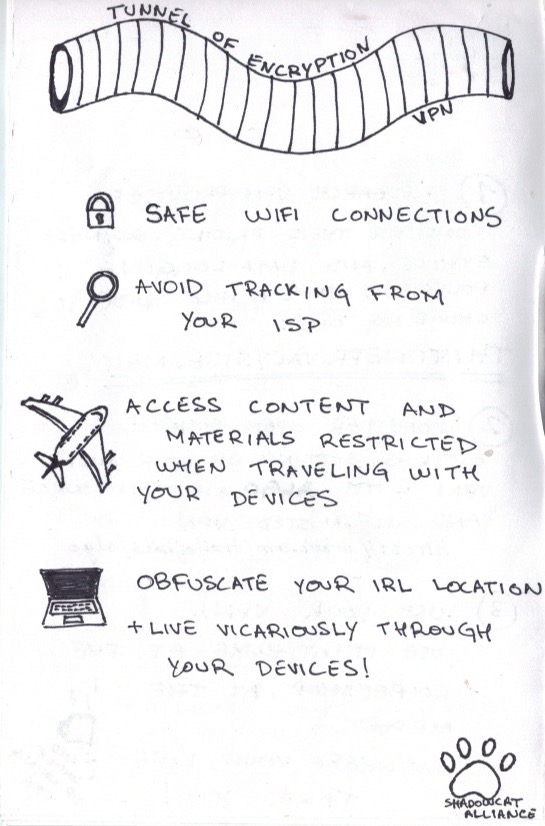 TUNNEL OF ENCRYPTION
VPN
SAFE WIFI CONNECTIONS
AVOID TRACKING FROM
YOUR ISP
ACCESS CONTENT AND
MATERIALS RESTRICTED
WHEN TRAVELING WITH
YOUR DEVICES
OBFUSCATE YOUR IRL LOCATION
+ LIVE VICARIOUSLY THROUGH
YOUR DEVICES!
SHADOWCAT
ALLIANCE